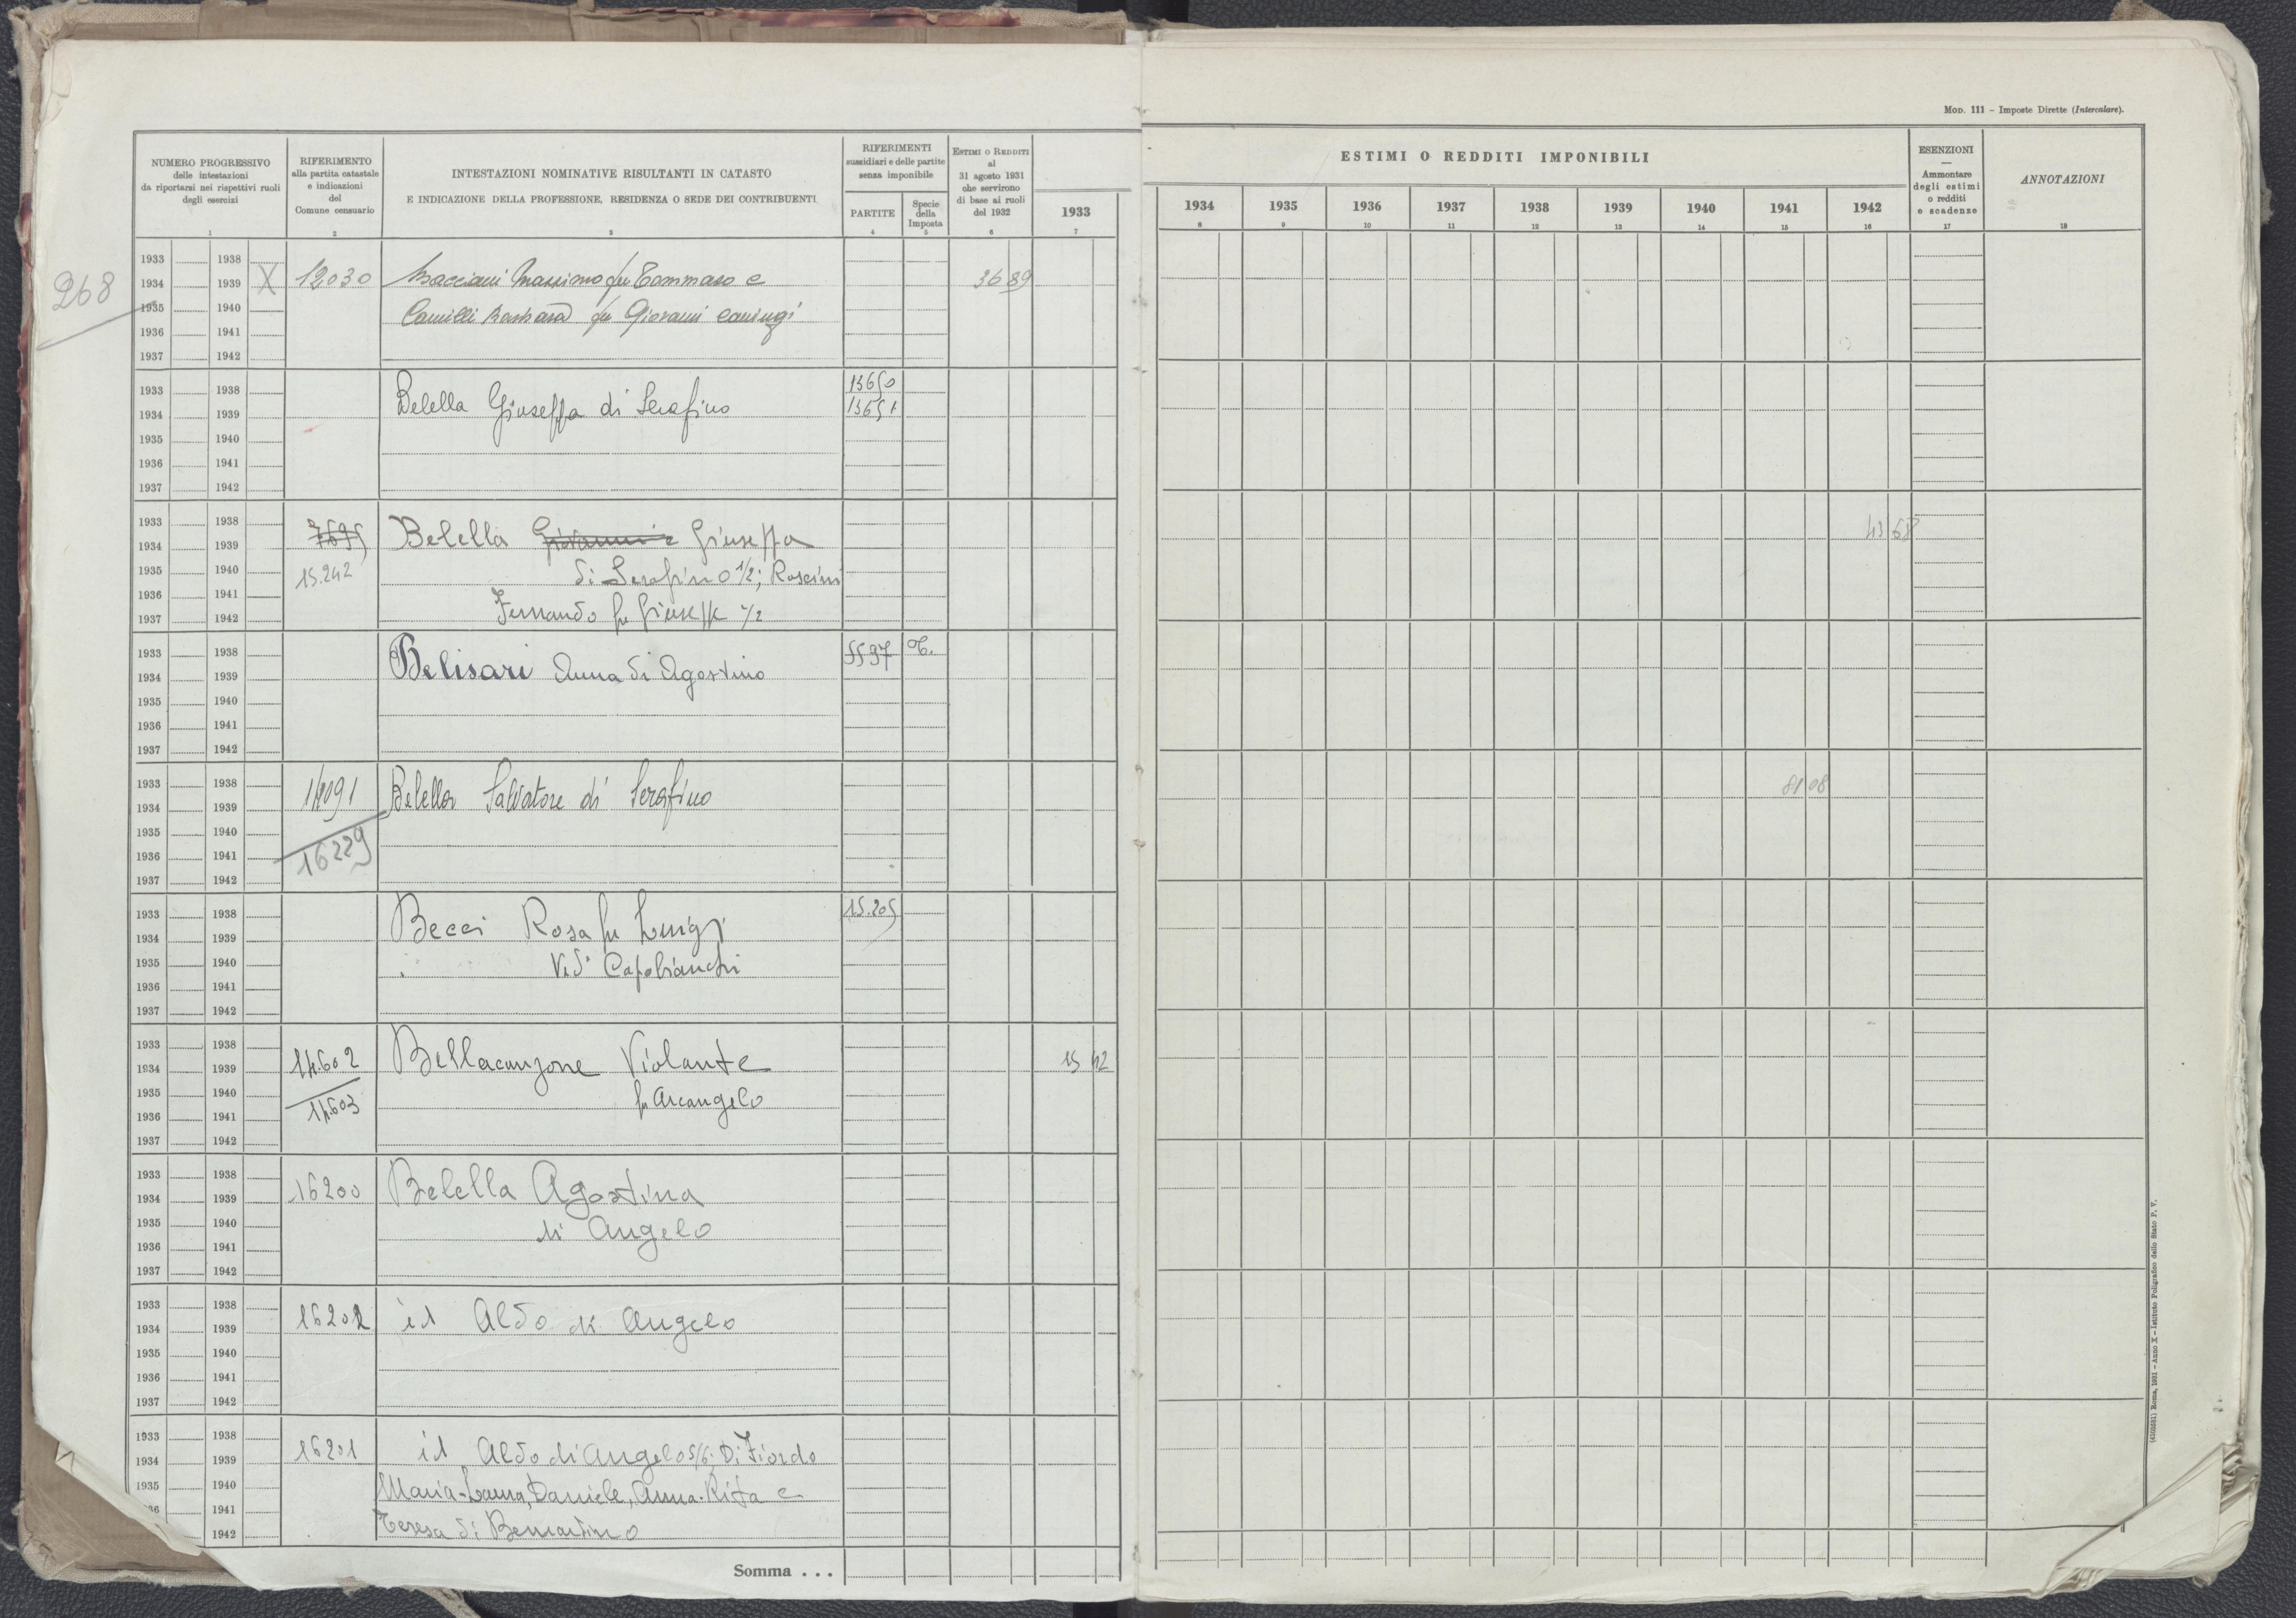 MOD. 111 – Imposte Dirette (Intercalare).
NUMERO PROGRESSIVO
delle intestazioni
da riportarsi nei rispettivi ruoli
degli esercizi
1
RIFERIMENTO
alla partita catastale
e indicazioni
del
Comune censuario
2
INTESTAZIONI NOMINATIVE RISULTANTI IN CATASTO
E INDICAZIONE DELLA PROFESSIONE, RESIDENZA O SEDE DEI CONTRIBUENTI
3
RIFERIMENTI
sussidiari e delle partite
senza imponibile
PARTITE
4
Specie
della
Imposta
5
ESTIMI O REDDITI
al
31 agosto 1931
che servirono
di base ai ruoli
del 1932
6
1933
7
ESTIMI O REDDITI IMPONIBILI
1934 1935 1936 1937 1938 1939 1940 1941 1942
8 9 10 11 12 13 14 15 16
ESENZIONI
—
Ammontare
degli estimi
o redditi
e scadenze
17
ANNOTAZIONI
18
268
1933 1938
1934 1939 X 12030 Massimo fu Tommaso e 36 89
1935 1940 Camilli Barbara fu Giovanni coniugi
1936 1941
1937 1942
1933 1938 13650
1934 1939 Belella Giuseppa di Serafino 13651
1935 1940
1936 1941
1937 1942
1933 1938 7695 43 68
1934 1939 Belella Giovanni e Giuseppa
1935 1940 15.242 di Serafino 1/2; Roscini
1936 1941
1937 1942 Fernando fu Giuseppe 1/2
1933 1938 5537
1934 1939 Belisari Anna di Agostino
1935 1940
1936 1941
1937 1942
1933 1938 14091 Belella Salvatore di Serafino 81 08
1934 1939
1935 1940
1936 1941 16229
1937 1942
1933 1938 15.205
1934 1939 Becci Rosa fu Luigi
1935 1940 Ved. Capobianchi
1936 1941
1937 1942
1933 1938
1934 1939 14.602 Bellacanzone Violante 15 42
1935 1940 fu Arcangelo
1936 1941 14603
1937 1942
1933 1938
1934 1939 16200 Belella Agostina
1935 1940 di Angelo
1936 1941
1937 1942
1933 1938
1934 1939 16202 id Aldo di Angelo
1935 1940
1936 1941
1937 1942
1933 1938
1934 1939 16201 id Aldo di Angelo 5/6; Di Fiordo
1935 1940 Maria-Laura, Daniele, Anna-Rita e
36 1941
1942 Teresa di Bernardino
Somma . . .
(4102681) Roma, 1931 – Anno X – Istituto Poligrafico dello Stato P. V.